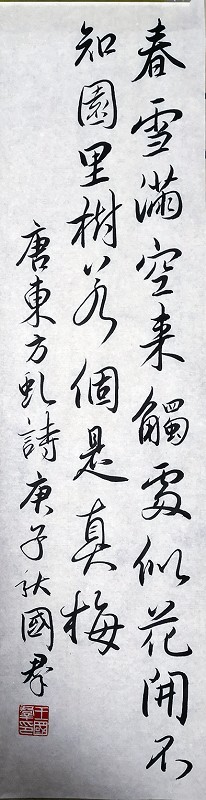 春雪滿空来觸處似花開不
知園里樹若個是真梅
唐東方虬詩庚子秋國群
王國羣印